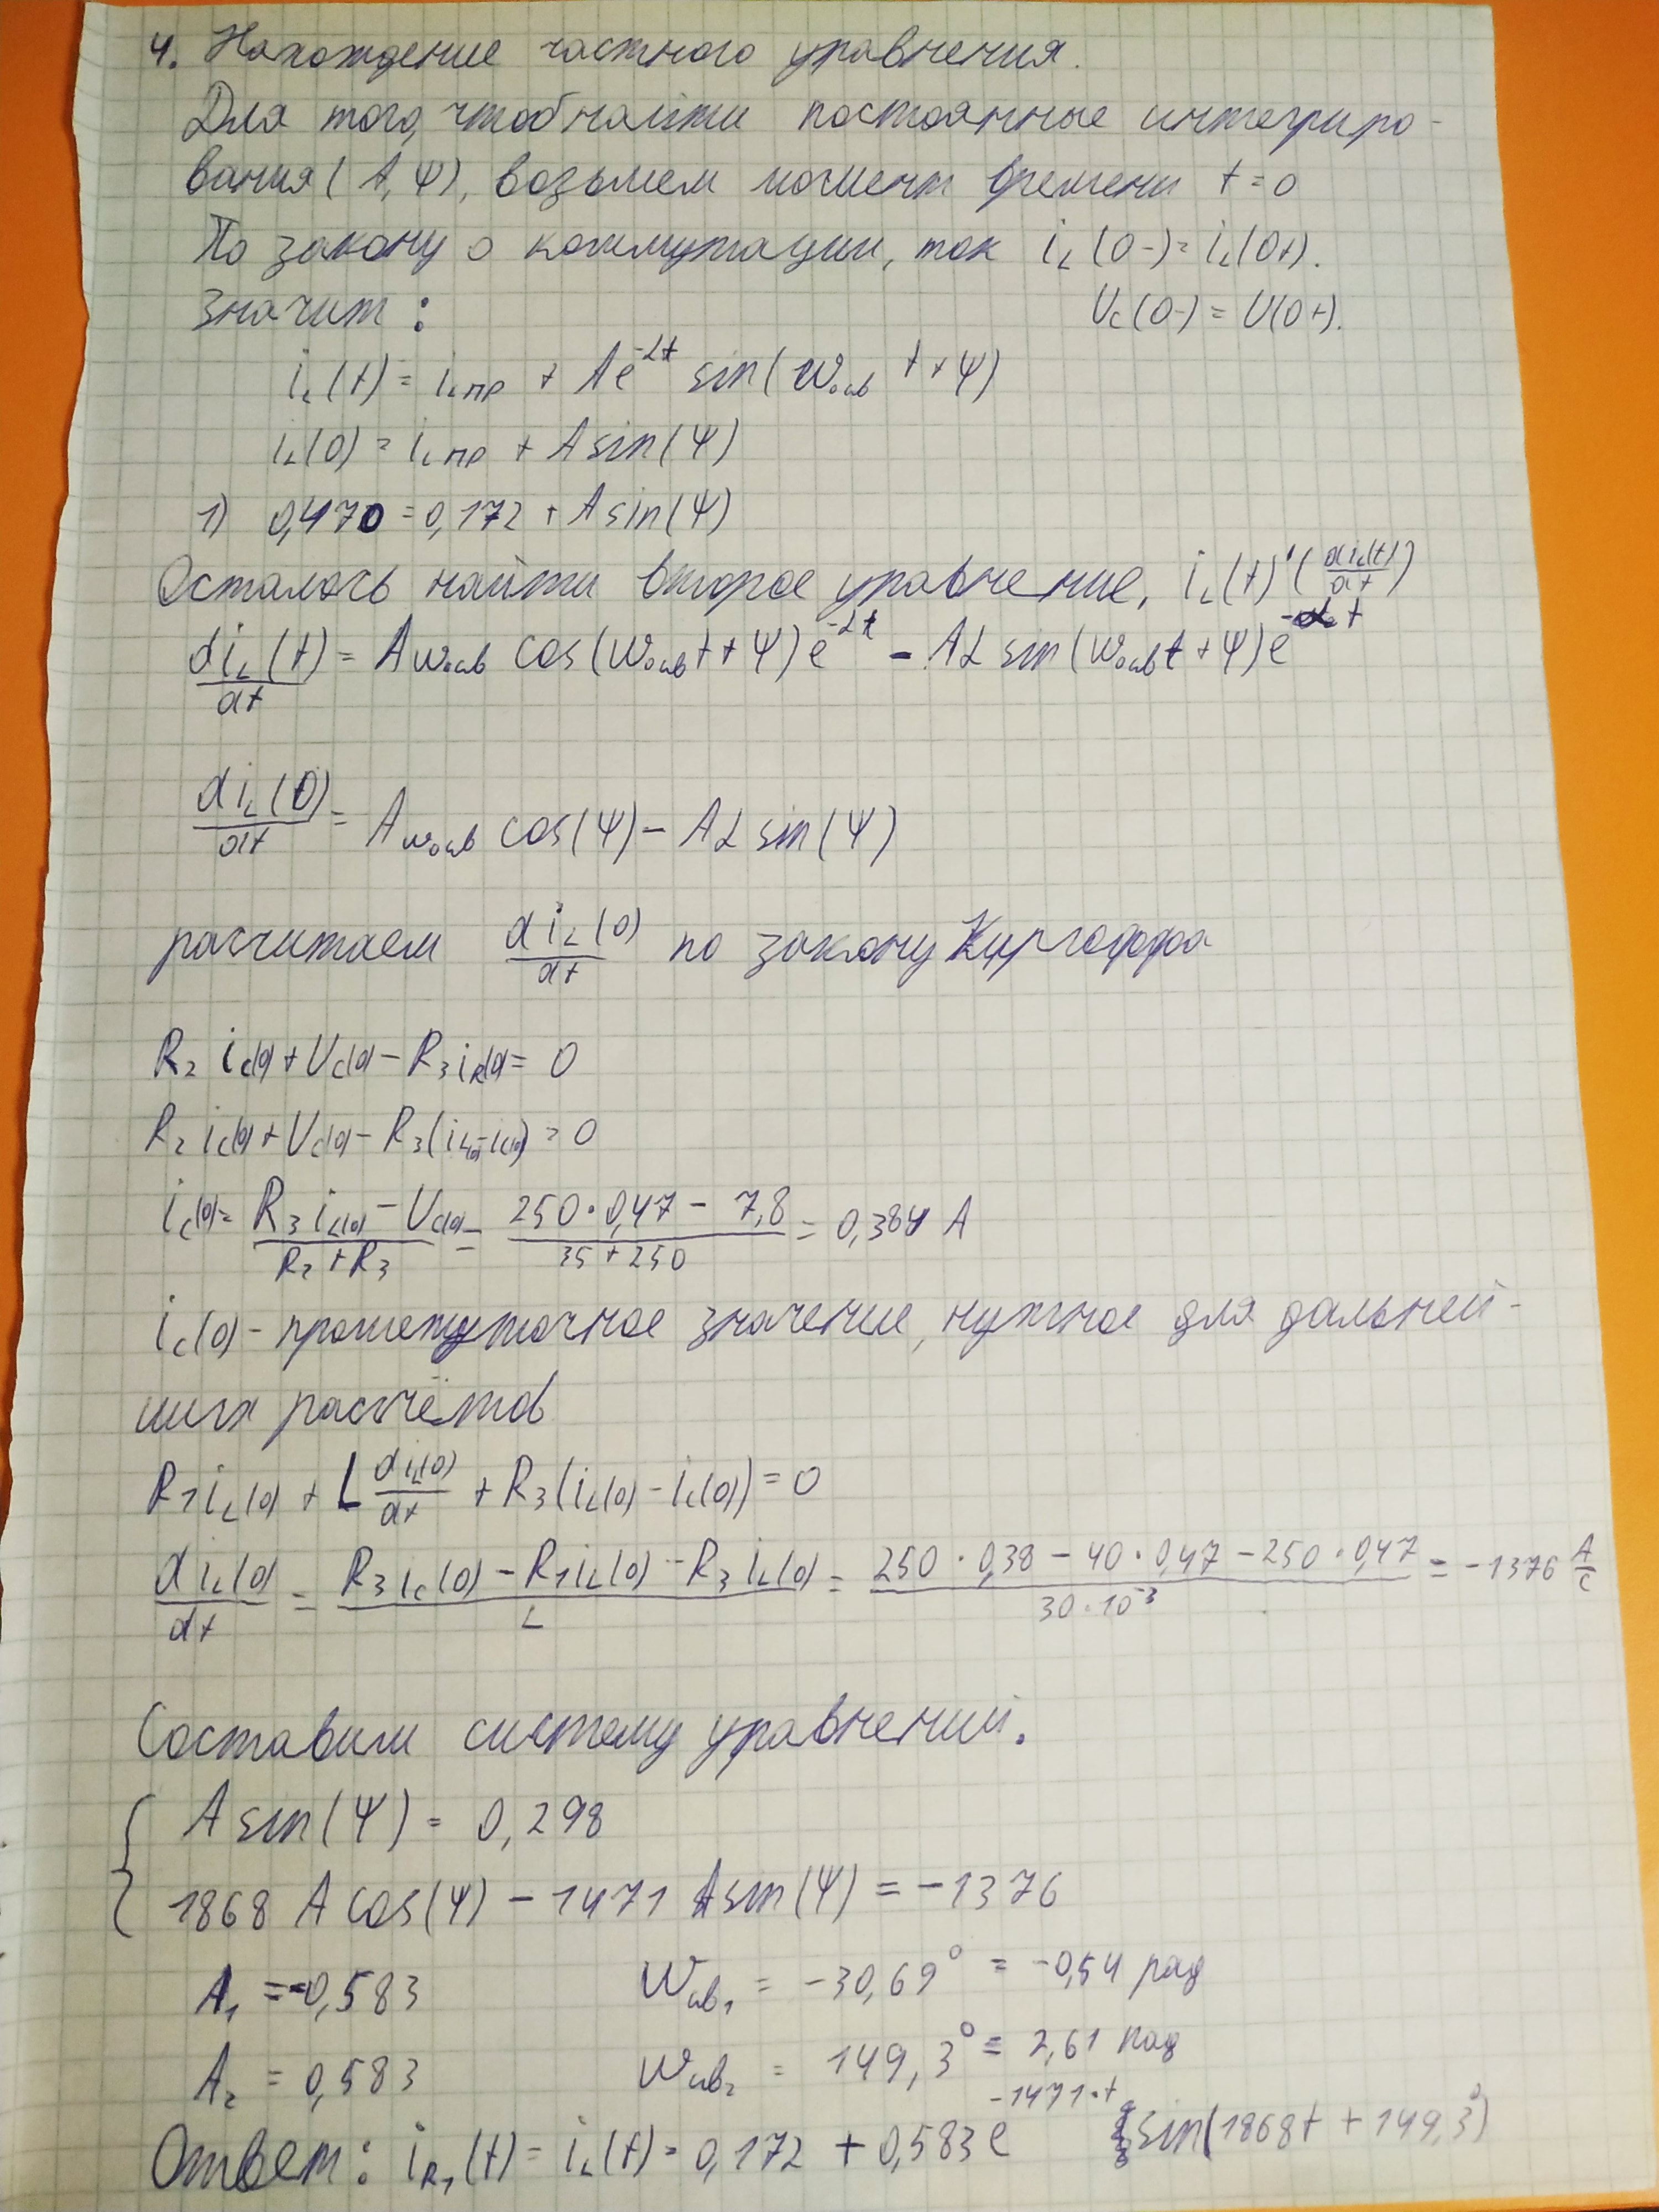 4. Нахождение частного уравнения.
Для того, чтоб найти постоянные интегриро-
вания (A, Ψ), возьмем момент времени t = 0
По закону о коммутации, ток i_L(0-) = i_L(0+).
Значит: U_C(0-) = U(0+).
i_L(t) = i_Lпр + Ae^{-αt} sin(ω_0св t + Ψ)
i_L(0) = i_Lпр + A sin(Ψ)
1) 0,470 = 0,172 + A sin(Ψ)
Осталось найти второе уравнение, i_L(t)' (di_L(t)/dt)
di_L(t)/dt = Aω_0св cos(ω_0св t + Ψ)e^{-αt} - Aα sin(ω_0св t + Ψ)e^{-αt}
di_L(0)/dt = Aω_0св cos(Ψ) - Aα sin(Ψ)
расчитаем di_L(0)/dt по закону Кирхгоффа
R_2 i_C(0) + U_C(0) - R_3 i_R(0) = 0
R_2 i_C(0) + U_C(0) - R_3(i_L(0) - i_C(0)) = 0
i_C(0) = (R_3 i_L(0) - U_C(0))/(R_2 + R_3) = (250·0,47 - 7,8)/(35 + 250) = 0,384 A
i_C(0) - промежуточное значение, нужное для дальней-
ших расчётов
R_1 i_L(0) + L di_L(0)/dt + R_3(i_L(0) - i_C(0)) = 0
di_L(0)/dt = (R_3 i_C(0) - R_1 i_L(0) - R_3 i_L(0))/L = (250·0,38 - 40·0,47 - 250·0,47)/(30·10^{-3}) = -1376 A/c
Составим систему уравнений.
A sin(Ψ) = 0,298
1868 A cos(Ψ) - 1471 A sin(Ψ) = -1376
A_1 = -0,583 ω_св1 = -30,69° = -0,54 рад
A_2 = 0,583 ω_св2 = 149,3° = 2,61 рад
Ответ: i_R1(t) = i_L(t) = 0,172 + 0,583 e^{-1471·t} sin(1868t + 149,3°)